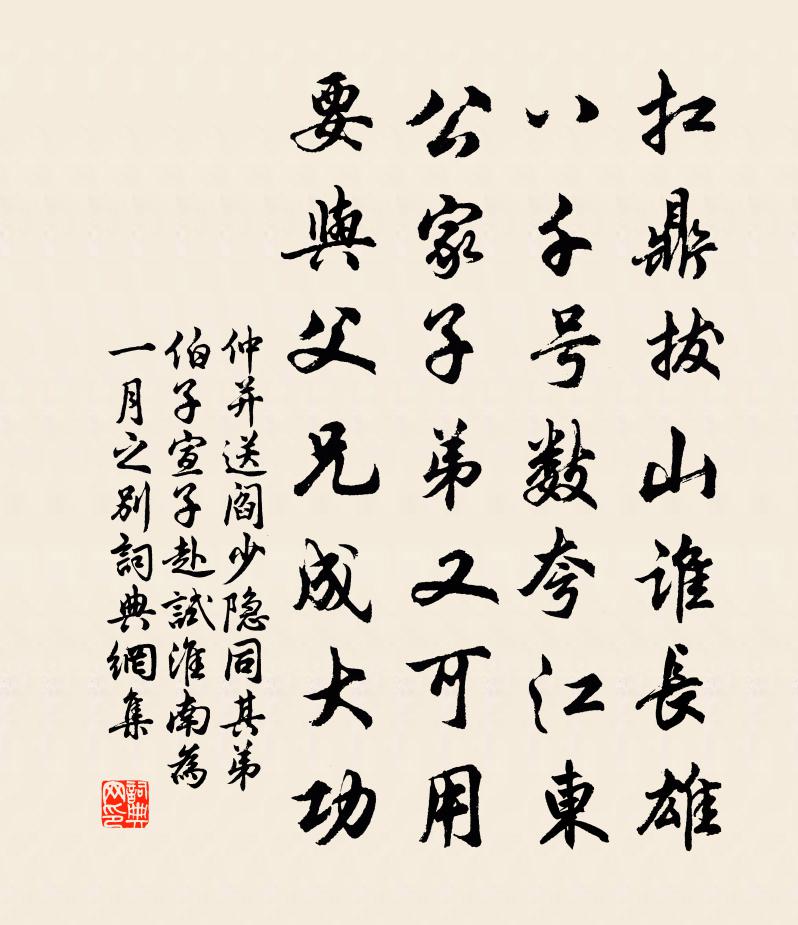 扛鼎拔山谁長雄
八千号數夸江東
公家子弟又可用
要與父兄成大功
仲并送阎少隐同其弟
伯子宣子赴試淮南為
一月之别詞典網集
詞典网印